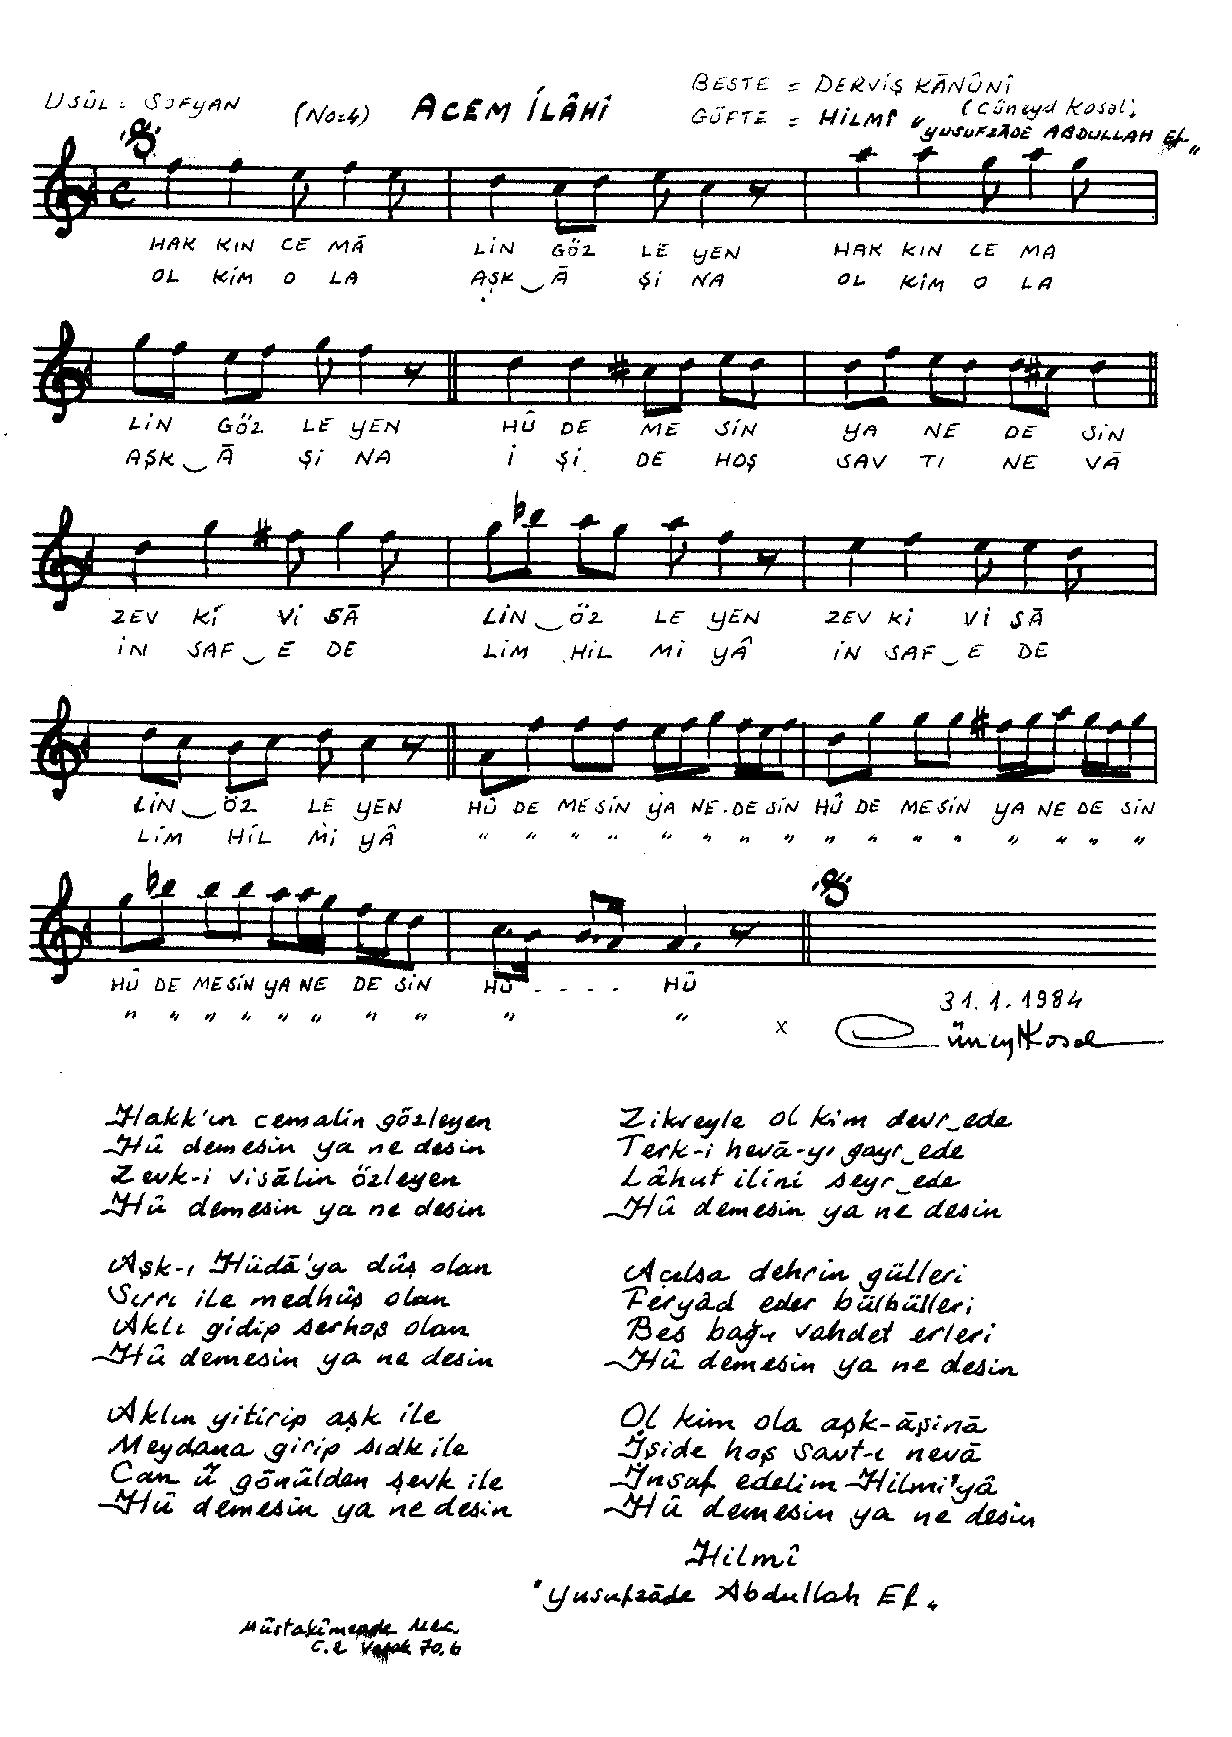 USÛL = SOFYAN (No:4) ACEM İLÂHİ BESTE = DERVİŞ KÂNÛNÎ
(Cüneyd Kosal)
GÜFTE = HİLMÎ "YUSUFZÂDE ABDULLAH Ef.„
HAK KIN CE MÂ LİN GÖZ LE YEN HAK KIN CE MA
OL KİM O LA AŞK‿Â Şİ NA OL KİM O LA
LİN GÖZ LE YEN HÛ DE ME SİN YA NE DE SİN
AŞK‿Â Şİ NA İ Şİ DE HOŞ SAV TI NE VÂ
ZEV Kİ Vİ SÂ LİN‿ÖZ LE YEN ZEV Kİ Vİ SÂ
İN SAF‿E DE LİM HİL Mİ YÂ İN SAF‿E DE
LİN‿ÖZ LE YEN HÛ DE ME SİN YA NE DE SİN HÛ DE ME SİN YA NE DE SİN
LİM HİL Mİ YÂ " " " " " " " " " " " " " " " "
HÛ DE ME SİN YA NE DE SİN HÛ - - - - HÛ
" " " " " " " " " "
31.1.1984
x Cüneyt Kosal
Hakk'ın cemalin gözleyen
Hû demesin ya ne desin
Zevk-i visâlin özleyen
Hû demesin ya ne desin
Aşk-ı Hüdâ'ya dûş olan
Sırrı ile medhûş olan
Aklı gidip serhoş olan
Hû demesin ya ne desin
Aklın yitirip aşk ile
Meydana girip sıdk ile
Can û gönülden şevk ile
Hû demesin ya ne desin
Zikreyle ol kim devr‿ede
Terk-i hevâ-yı gayr‿ede
Lâhut ilini seyr‿ede
Hû demesin ya ne desin
Açılsa dehrin gülleri
Feryâd eder bülbülleri
Bes bağ-ı vahdet erleri
Hû demesin ya ne desin
Ol kim ola aşk-âşinâ
İşide hoş savt-ı nevâ
İnsaf edelim Hilmi'yâ
Hû demesin ya ne desin
Hilmî
"Yusufzâde Abdullah Ef.„
Müstakîmzade Mec.
70.b